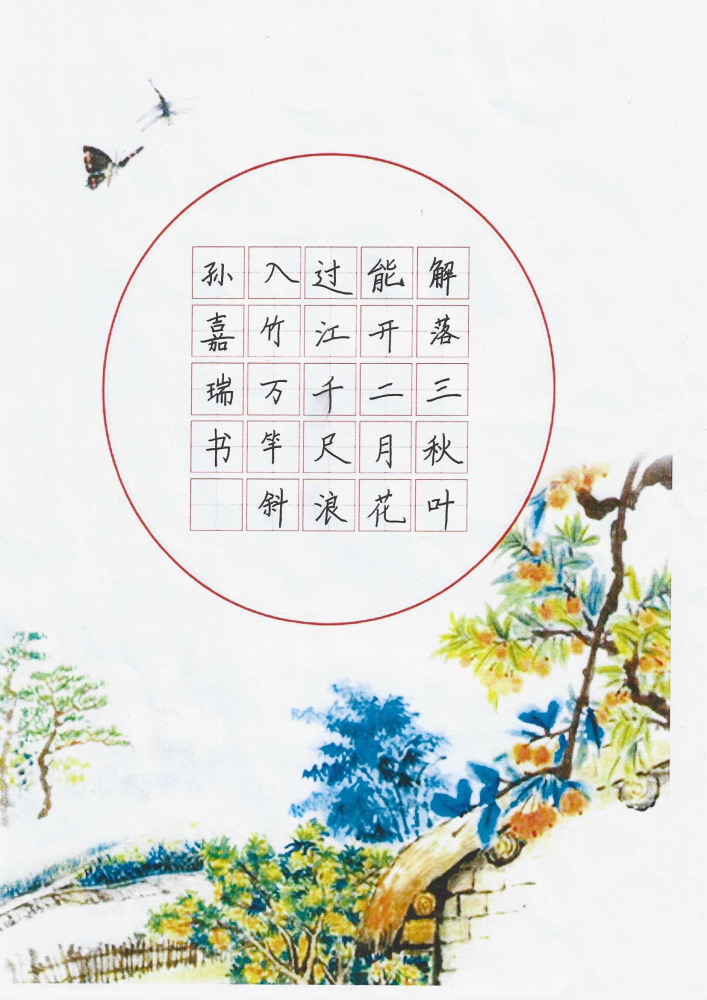 解落三秋叶
能开二月花
过江千尺浪
入竹万竿斜
孙嘉瑞书